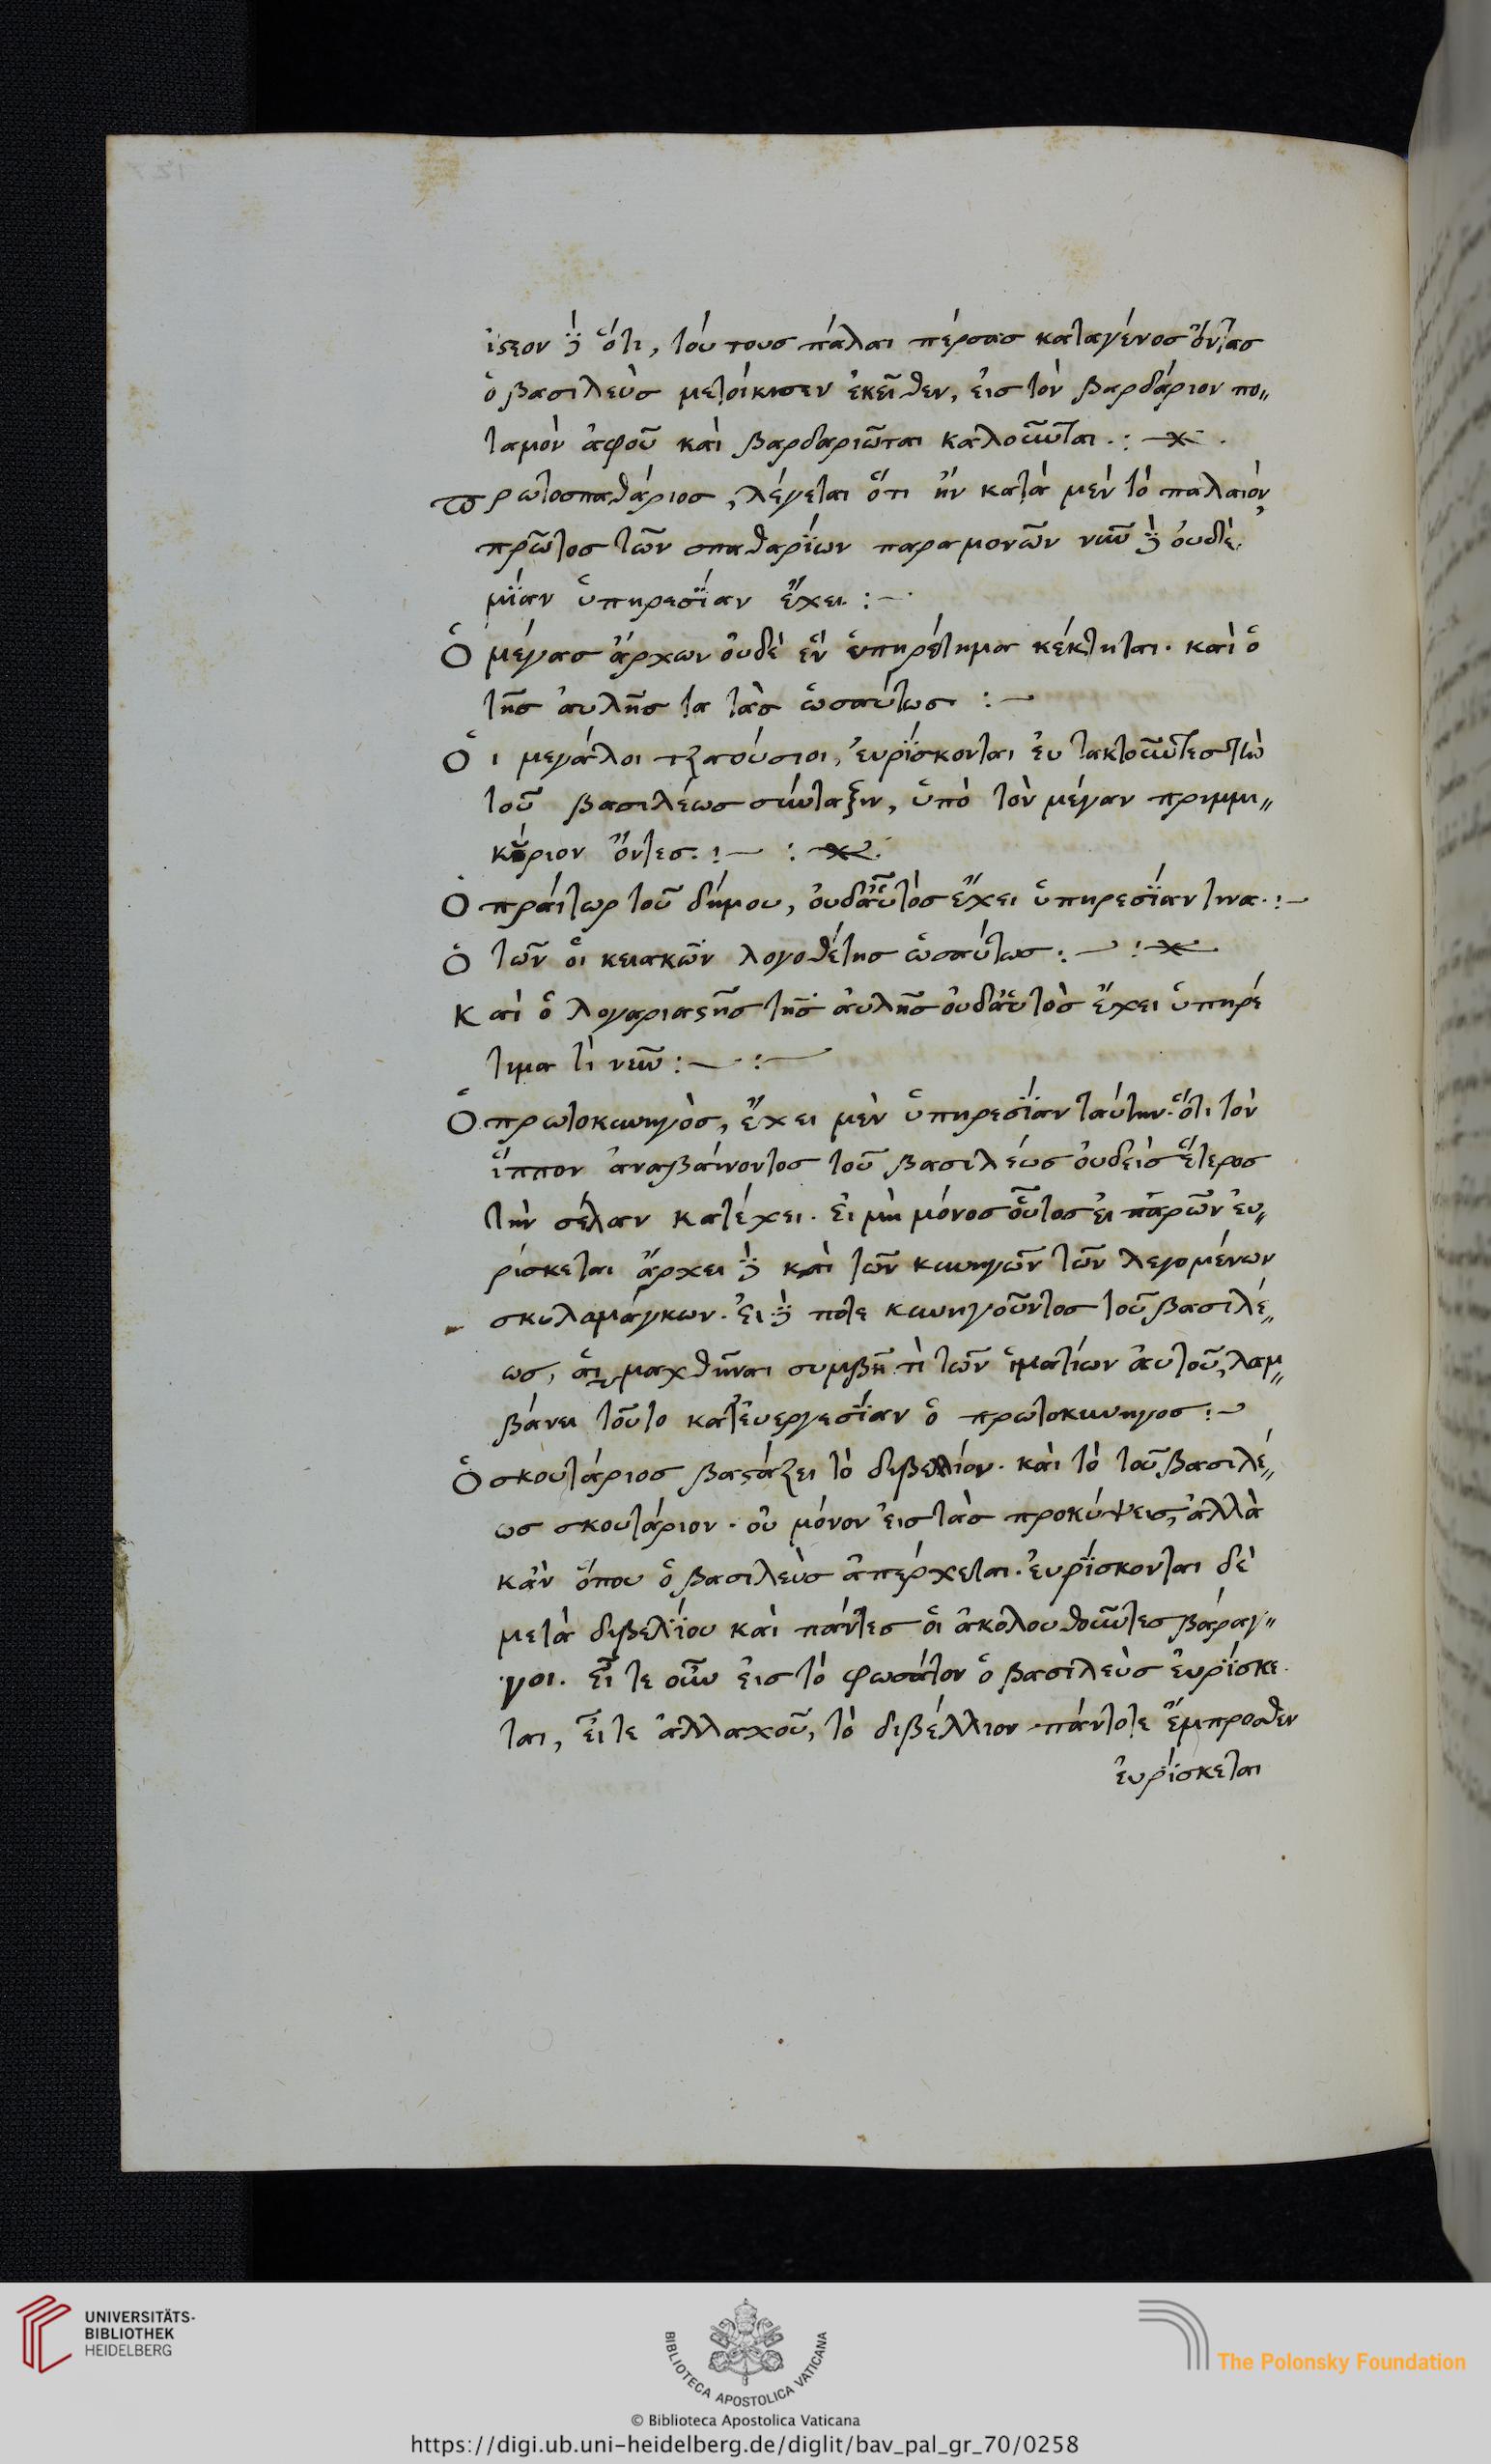 ἰστέον δὲ ὅτι, τούτους πάλαι πέρσας καταγένος ὄντας
ὁ βασιλεὺς μετοίκισεν ἐκεῖθεν, εἰς τὸν βαρδάριον πο〃
ταμὸν ἀφοῦ καὶ βαρδαριῶται καλοῦνται .:
Πρωτοσπαθάριος, λέγεται ὅτι ἦν κατὰ μὲν τὸ παλαιὸν,
πρῶτος τῶν σπαθαρΐων παραμονῶν νῦν δὲ οὐδὲ
μΐαν ὑπηρεσΐαν ἔχει :
Ὁ μέγας ἄρχων οὐδὲ ἓν ὑπηρέτημα κέκτηται. καὶ ὁ
τῆς αὐλῆς τατὰς ὡσαύτως :
Οἱ μεγάλοι τζαούσιοι, εὑρΐσκονται εὐτακτοῦντες τὼ
τοῦ βασιλέως σύνταξιν, ὑπὸ τὸν μέγαν πριμμι〃
κήριον ὄντες .:
Ὁ πραίτωρ τοῦ δήμου, οὐδ'αὐτὸς ἔχει ὑπηρεσΐαν τινα .:
Ὁ τῶν οἰκειακῶν λογοθέτης ὡσαύτως :
Καὶ ὁ λογαριαστῆς τῆς αὐλῆς οὐδ'αὐτὸς ἔχει ὑπηρέ
τιμα τὶ νῦν :
Ὁ πρωτοκυνηγὸς, ἔχει μὲν ὑπηρεσΐαν ταύτην. ὅτι τὸν
ἵππον ἀναβαίνοντος τοῦ βασιλέως οὐδεὶς ἕτερος
τὴν σέλαν κατέχει. εἰ μὴ μόνος οὗτος εἰ παρῶν εὑ〃
ρίσκεται ἄρχει δὲ καὶ τῶν κυνηγῶν τῶν λεγομένων
σκυλομάγκων. εἰ δέ ποτε κυνηγοῦντος τοῦ βασιλέ〃
ως, αἱμαχθῆναι συμβῆ τὶ τῶν ἱματίων αὐτοῦ, λαμ〃
βάνει τοῦτο κατ'εὐεργεσΐαν ὁ πρωτοκυνηγος :
Ὁ σκουτάριος βαστάζει τὸ διβελλίον. καὶ τὸ τοῦ βασιλέ〃
ως σκουτάριον. οὐ μόνον εἰς τὰς προκύψεις, ἀλλὰ
κἂν ὅπου ὁ βασιλεὺς ἀπέρχεται. εὑρΐσκονται δὲ
μετὰ διβελΐου καὶ πάντες οἱ ἀκολουθοῦντες βάραγ〃
γοι. εἴτε οὖν εἰς τὸ φωσάτον ὁ βασιλεὺς εὑρΐσκε
ται, εἴτε ἀλλαχοῦ, τὸ διβέλλιον πάντοτε ἔμπροσθεν
εὑρΐσκεται
UNIVERSITÄTS-
BIBLIOTHEK
HEIDELBERG
BIBLIOTECA APOSTOLICA VATICANA
The Polonsky Foundation
© Biblioteca Apostolica Vaticana
https://digi.ub.uni-heidelberg.de/diglit/bav_pal_gr_70/0258